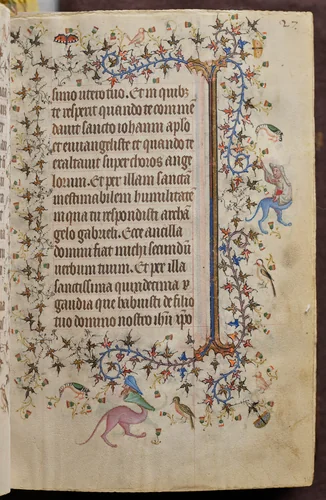 27
simo utero tuo. Et in quibz
te respexit quando te comme
davit sancto iohanni aplo
et euuangeliste et quando te
exaltauit super choros ange
lorum. Et per illam sanctā
inestimabilem humilitatē
in qua tu respondisti archā
gelo gabrieli. Ecce ancilla
domini fiat michi secundū
uerbum tuum. Et per illa
sanctissima quindecima
gaudia que habuisti de filio
tuo domino nostro ihū xpo